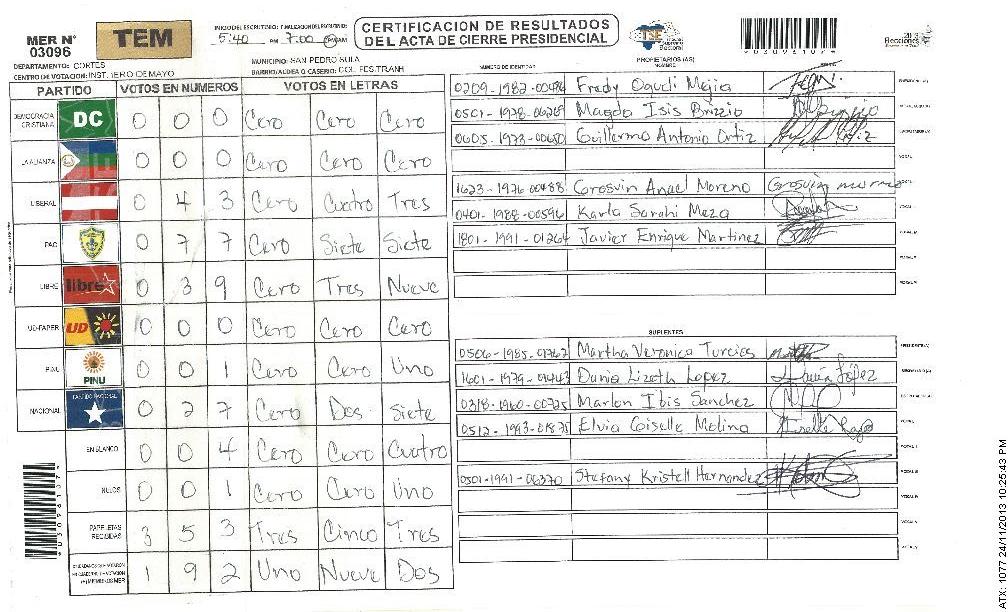 MER N° 03096
TEM
INICIO DEL ESCRUTINIO: FINALIZACION DEL ESCRUTINIO:
5:40 PM 7:00
CERTIFICACION DE RESULTADOS
DEL ACTA DE CIERRE PRESIDENCIAL
TSE Tribunal Supremo Electoral
9030961077
DEPARTAMENTO: CORTES
MUNICIPIO: SAN PEDRO SULA
CENTRO DE VOTACION: INST. 1ERO DE MAYO
BARRIO/ALDEA O CASERIO: COL. FES.TRANH
PARTIDO VOTOS EN NUMEROS VOTOS EN LETRAS
DEMOCRACIA CRISTIANA DC 0 0 0 Cero Cero Cero
LA ALIANZA 0 0 0 Cero Cero Cero
LIBERAL 0 4 3 Cero Cuatro Tres
PAC 0 7 7 Cero Siete Siete
LIBRE libre 0 3 9 Cero Tres Nueve
UD-FAPER UD 0 0 0 Cero Cero Cero
PINU PINU 0 0 1 Cero Cero Uno
NACIONAL PARTIDO NACIONAL 0 2 7 Cero Dos Siete
EN BLANCO 0 0 4 Cero Cero Cuatro
NULOS 0 0 1 Cero Cero Uno
PAPELETAS RECIBIDAS 3 5 3 Tres Cinco Tres
1 9 2 Uno Nueve Dos
NUMERO DE IDENTIDAD PROPIETARIOS (AS) NOMBRE FIRMA
0209-1982-00486 Fredy Oqueli Mejia
0501-1978-06269 Magda Isis Brizzio
0605-1973-00680 Guillermo Antonio Ortiz
VOCAL
1623-1976-00488 Grosvin Anael Moreno Grosvin
0401-1988-00596 Karla Sarahi Meza
1801-1991-01264 Javier Enrique Martinez
SUPLENTES
0506-1985-01762 Martha Veronica Turcios
1601-1979-01443 Dunia Lizeth Lopez Dunia López
0318-1960-00725 Marlon Ibis Sanchez
0512-1993-01875 Elvia Giselle Molina
0501-1991-06370 Stefany Kristell Hernandez
9030961077
ATX: 1077 24/11/2013 10:25:43 PM